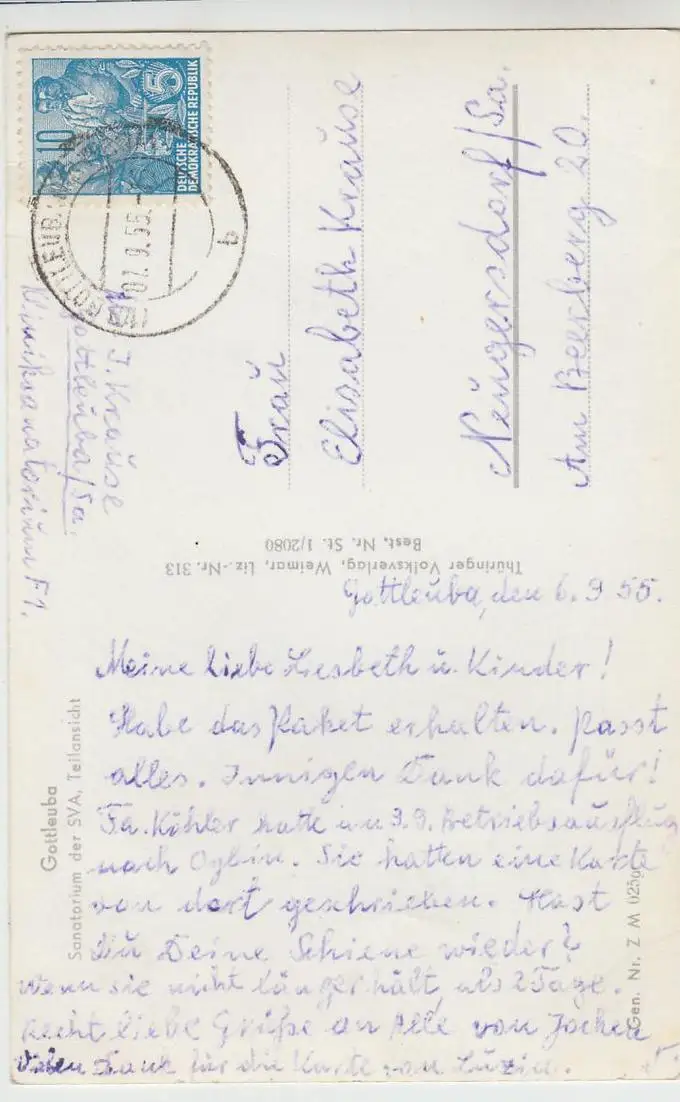 10
5
DEUTSCHE
DEMOKRATISCHE REPUBLIK
GOTTLEUBA
07.9.55
b
J. Krause
Gottleuba/Sa.
Kliniksanatorium F1.
Frau
Elisabeth Krause
Neugersdorf/Sa.
Am Beerberg 20.
Thüringer Volksverlag, Weimar, Liz.-Nr. 313
Best. Nr. St. 1/2080
Gottleuba
Sanatorium der SVA, Teilansicht
Gen. Nr. Z M 025
Gottleuba, den 6. 9 55.
Meine liebe Liesbeth u. Kinder!
Habe das Paket erhalten. passt
alles. Innigen Dank dafür!
Fa. Köhler hatte am 3.9. Betriebsausflug
nach Oybin. Sie hatten eine Karte
von dort geschrieben. Hast
Du Deine Schiene wieder?
Wenn sie nicht länger hält, als 2 Tage.
Recht liebe Grüße an Alle von Jochen
Vielen Dank für die Karte von